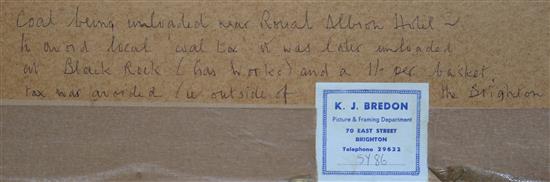 Coal being unloaded near Royal Albion Hotel –
to avoid local coal tax it was later unloaded
at Black Rock (Gas Works) and a 1/- per basket
tax was avoided (ie outside of the Brighton
K. J. BREDON
Picture & Framing Department
70 EAST STREET
BRIGHTON
Telephone 29632
SY86